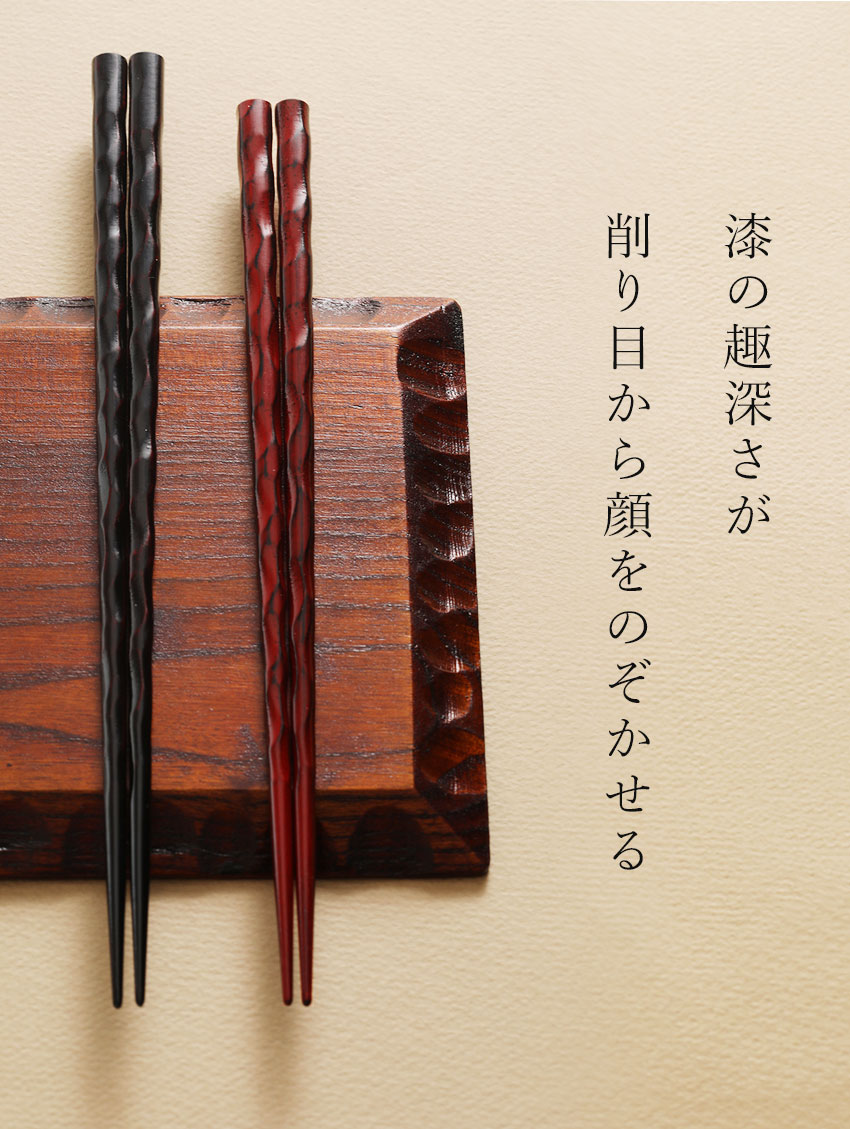 漆の趣深さが
削り目から顔をのぞかせる